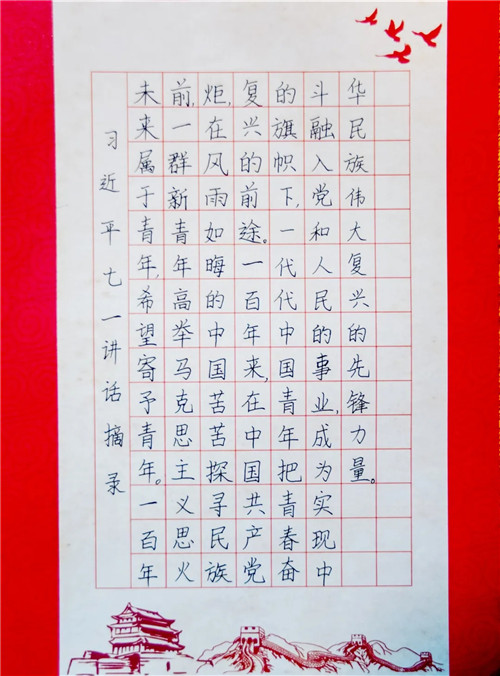 习近平七一讲话摘录
未来属于青年,希望寄予青年。一百年
前,一群新青年高举马克思主义思火
炬,在风雨如晦的中国苦苦探寻民族
复兴的前途。一百年来,在中国共产党
的旗帜下,一代代中国青年把青春奋
斗融入党和人民的事业,成为实现中
华民族伟大复兴的先锋力量。